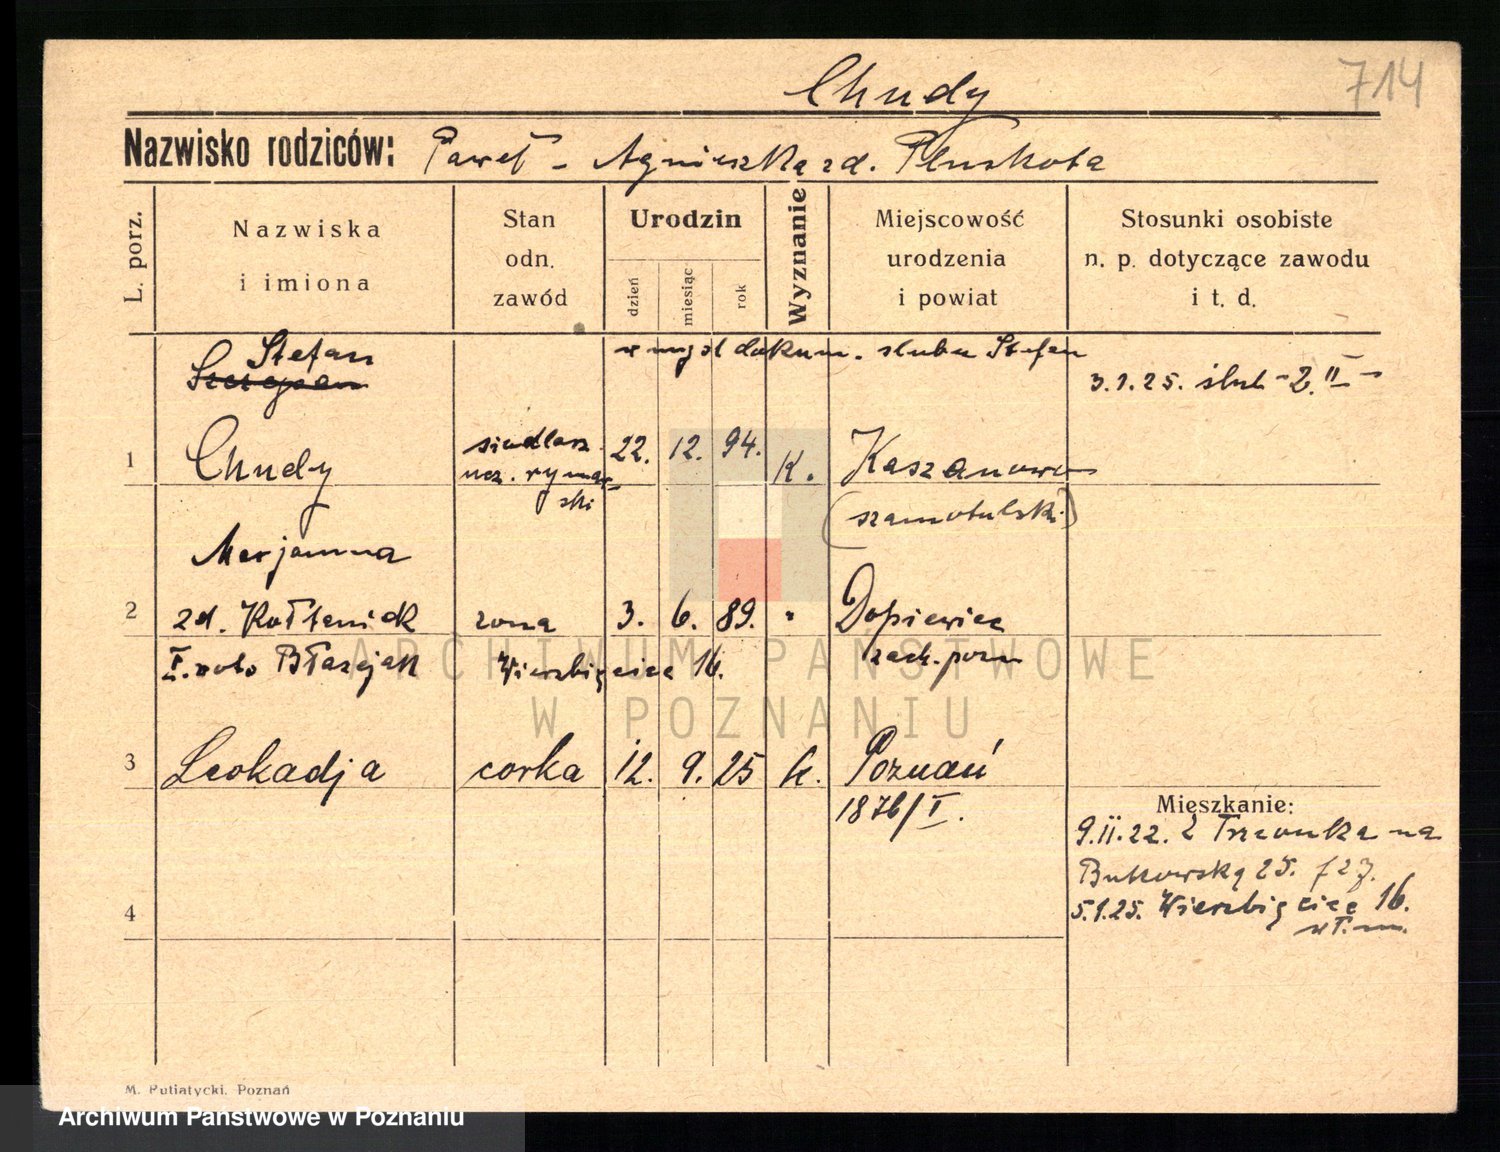 Chudy
714
Nazwisko rodziców: Paweł - Agnieszka zd. Pluskota
L. porz.
Nazwiska
i imiona
Stan
odn.
zawód
Urodzin
dzień
miesiąc
rok
Wyznanie
Miejscowość
urodzenia
i powiat
Stosunki osobiste
n. p. dotyczące zawodu
i t. d.
Stefan
Szczepan
w myśl dokum. ślubu Stefan
3.1.25. ślub - 2.II -
1
Chudy
siodlarz
ucz. rymar-
ski
22. 12. 94.
K.
Kaszanowo
(szamotulski)
Marjanna
2
zd. Kołtoniak
żona
3. 6. 89.
"
Dopiewiec
zach. pozn
I. voto Błażejak
Wierzbięcice 16.
3
Leokadja
córka
12. 9. 25
k.
Poznań
1876/I.
Mieszkanie:
9.II.22. z Trzcionka na
Bukowską 25.
5.1.25. Wierzbięcice 16.
wł. m.
4
M. Putiatycki, Poznań
ARCHIWUM PAŃSTWOWE
W POZNANIU
Archiwum Państwowe w Poznaniu